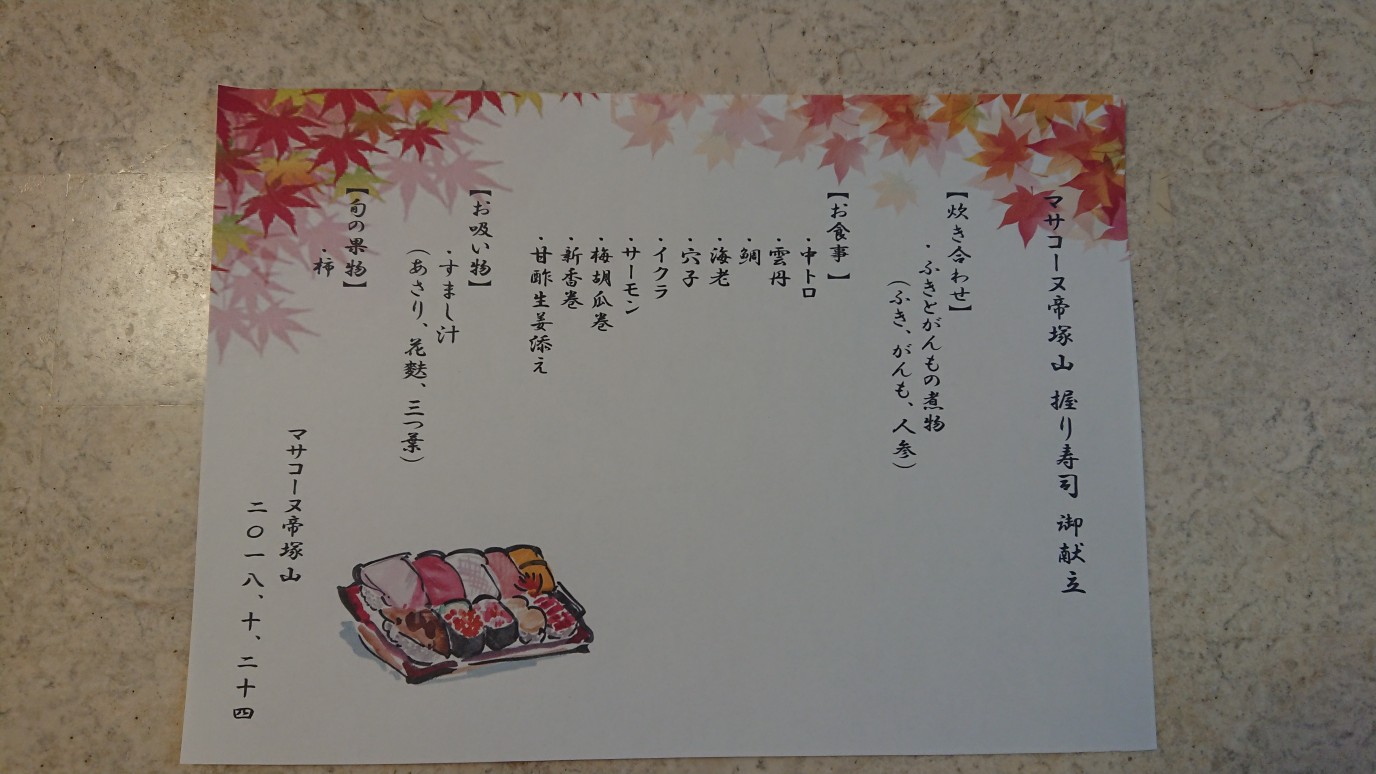 マサコーヌ帝塚山 握り寿司 御献立
【炊き合わせ】
・ふきとがんもの煮物
(ふき、がんも、人参)
【お食事】
・中トロ
・雲丹
・鯛
・海老
・穴子
・イクラ
・サーモン
・梅胡瓜巻
・新香巻
・甘酢生姜添え
【お吸い物】
・すまし汁
(あさり、花麩、三つ葉)
【旬の果物】
・柿
マサコーヌ帝塚山
二〇一八、十、二十四